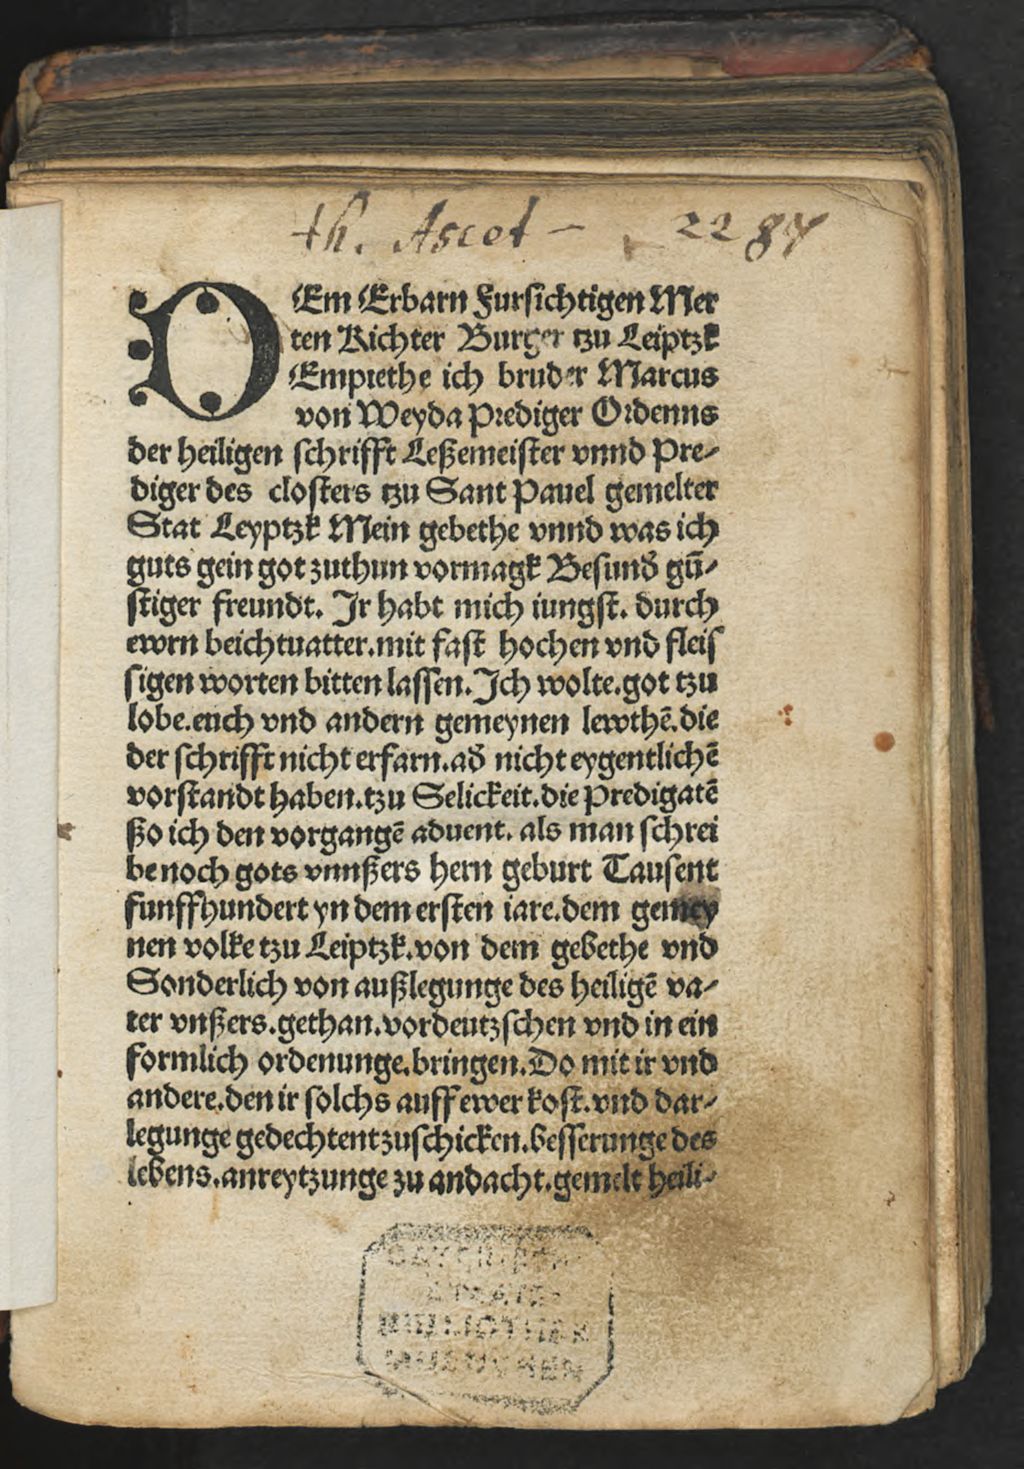 th. Ascet — 2287
DEm Erbarn Fursichtigen Mer
ten Richter Burger tzu Leiptzk
Empiethe ich bruder Marcus
von Weyda prediger Ordenns
der heiligen schrifft Leßemeister vnnd Pre-
diger des closters tzu Sant Pauel gemelter
Stat Leyptzk Mein gebethe vnnd was ich
guts gein got zuthun vormagk Besund̕ gū-
stiger freundt. Jr habt mich iungst. durch
ewrn beichtuatter.mit fast hochen vnd fleis
sigen worten bitten lassen. Jch wolte.got tzu
lobe.euch vnd andern gemeynen lewthē.die
der schrifft nicht erfarn.ad̕ nicht eygentlichē
vorstandt haben.tzu Selickeit.die predigatē
ßo ich den vorgangē aduent. als man schrei
be noch gots vnnßers hern geburt Tausent
funffhundert yn dem ersten iare.dem gemey
nen volke tzu Leiptzk.von dem gebethe vnd
Sonderlich von außlegunge des heiligē va-
ter vnßers.gethan.vordeutzschen vnd in ein
formlich ordenunge.bringen. Do mit ir vnd
andere.den ir solchs auff ewer kost.vnd dar-
legunge gedechtent zuschicken.besserunge des
lebens.anreytzunge zu andacht.gemelt heili-